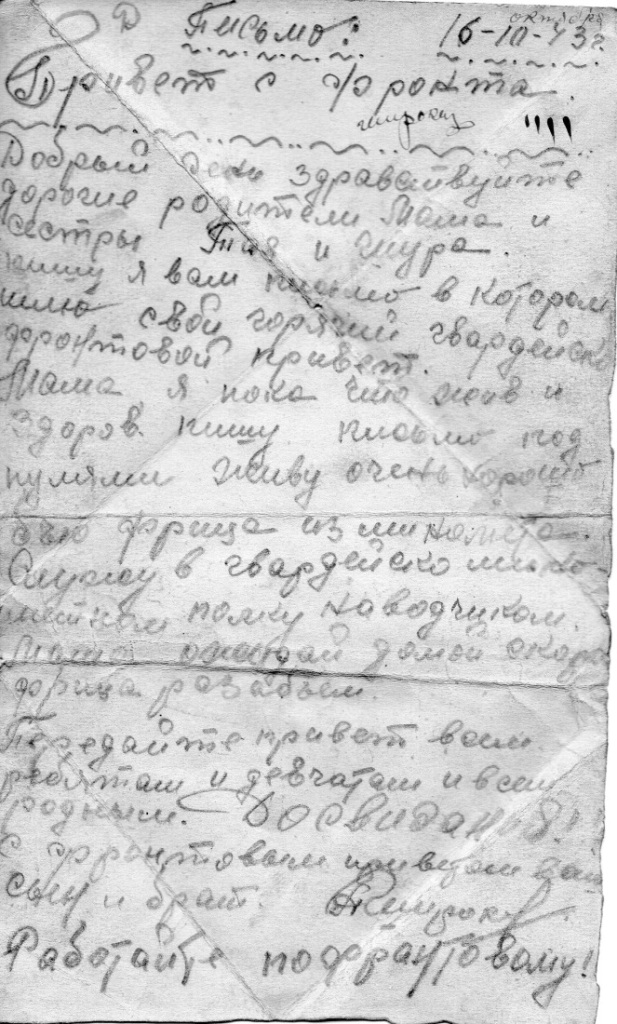 октября
Письмо: 16-10-43г.
Привет с фронта.
Добрый день здравствуйте
дорогие родители Мама и
сестры Тая и Шура.
пишу я вам письмо в котором
шлю свой горячий гвардейски
фронтовой привет.
Мама я пока что жив и
здоров. пишу письмо под
пулями живу очень хорошо
бью фрица из миномёта.
Служу в гвардейско мино-
метном полку наводчиком.
Мама ожидай домой скоро
фрица разабьем.
Передайте привет всем
ребятам и девчатам и всем
родным. Досвидания!
С фронтовым приветом ваш
сын и брат.
Работайте пофронтовому!